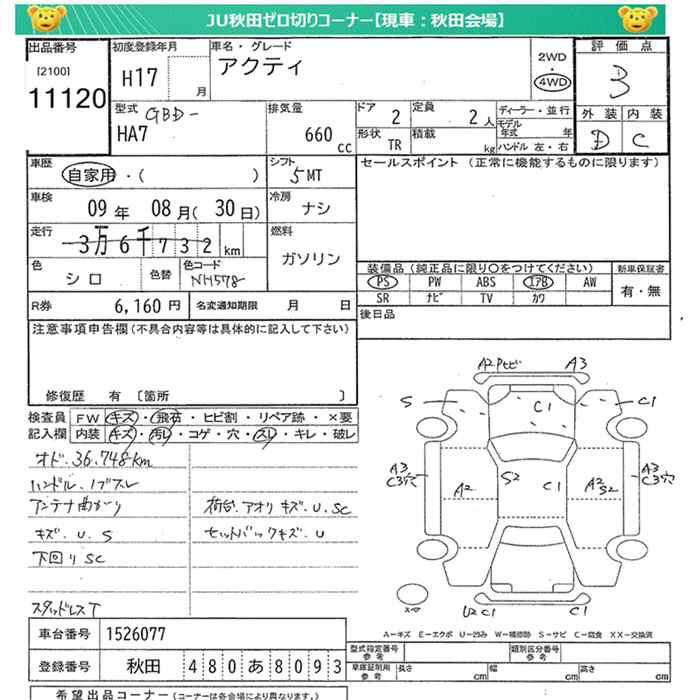 JU秋田ゼロ切りコーナー【現車：秋田会場】
出品番号
[2100]
11120
初度登録年月
H17
月
車名・グレード
アクティ
2WD
4WD
評価点
3
外装 内装
D C
型式
GBD-
HA7
排気量
660
cc
ドア
2
定員
2人
形状
TR
積載
kg
ディーラー・並行
モデル
年式 年
ハンドル 左・右
車歴
自家用・( )
シフト
5MT
セールスポイント（正常に機能するものに限ります）
車検
09年 08月(30日)
冷房
ナシ
走行
3万6千732km
燃料
ガソリン
色
シロ
色替
色コード
NH578
装備品（純正品に限り○をつけてください）
新車保証書
PS PW ABS エアB AW
SR ナビ TV カワ
有・無
R券
6,160円
名変通知期限 月 日
後日品
注意事項申告欄(不具合内容等は具体的に記入して下さい)
修復歴 有 〔箇所 〕
検査員
記入欄
FW キズ・飛石・ヒビ割・リペア跡・×要
内装 キズ・汚レ・コゲ・穴・スレ・キレ・破レ
オド.36,748km
ハンドル.1ブズレ
アンテナ曲がり
荷台.アオリキズ.U.SC
キズ.U.S
セットバックキズ.U
下回りSC
スタッドレスT
A2Pヒビ
A3
S
C1
C1
A3
C3穴
A2
S2
C1
A2
S2
A3
C3穴
スペア
U2C1
C1
A－キズ E－エクボ U－凹み W－補修跡 S－サビ C－腐食 XX－交換済
車台番号
1526077
登録番号
秋田 480あ8093
型式指定番号
参考
類別区分番号
参考
車庫証明用
参考
長さ cm
幅 cm
高さ cm
希望出品コーナー(コーナーは各会場により異なります。)